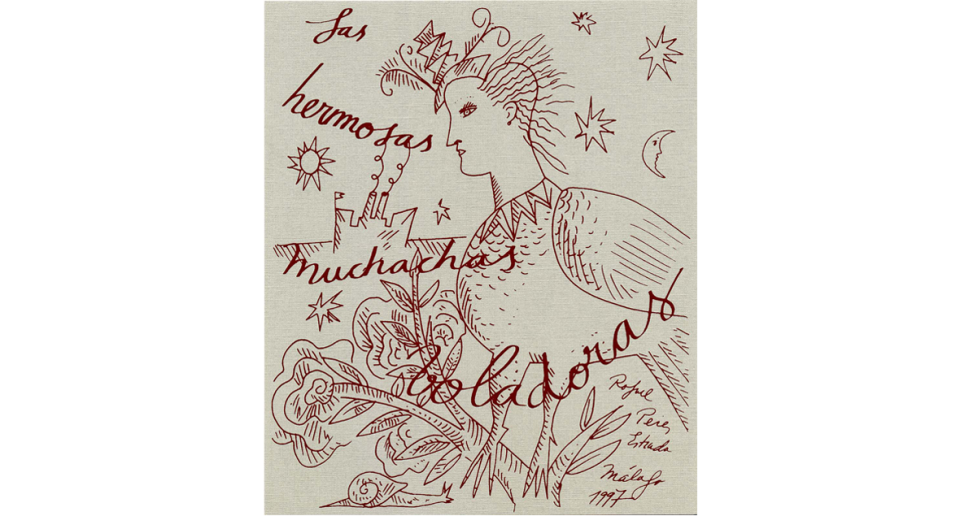 Las
hermosas
muchachas
voladoras
Rafael
Perez
Estrada
Málaga
1997